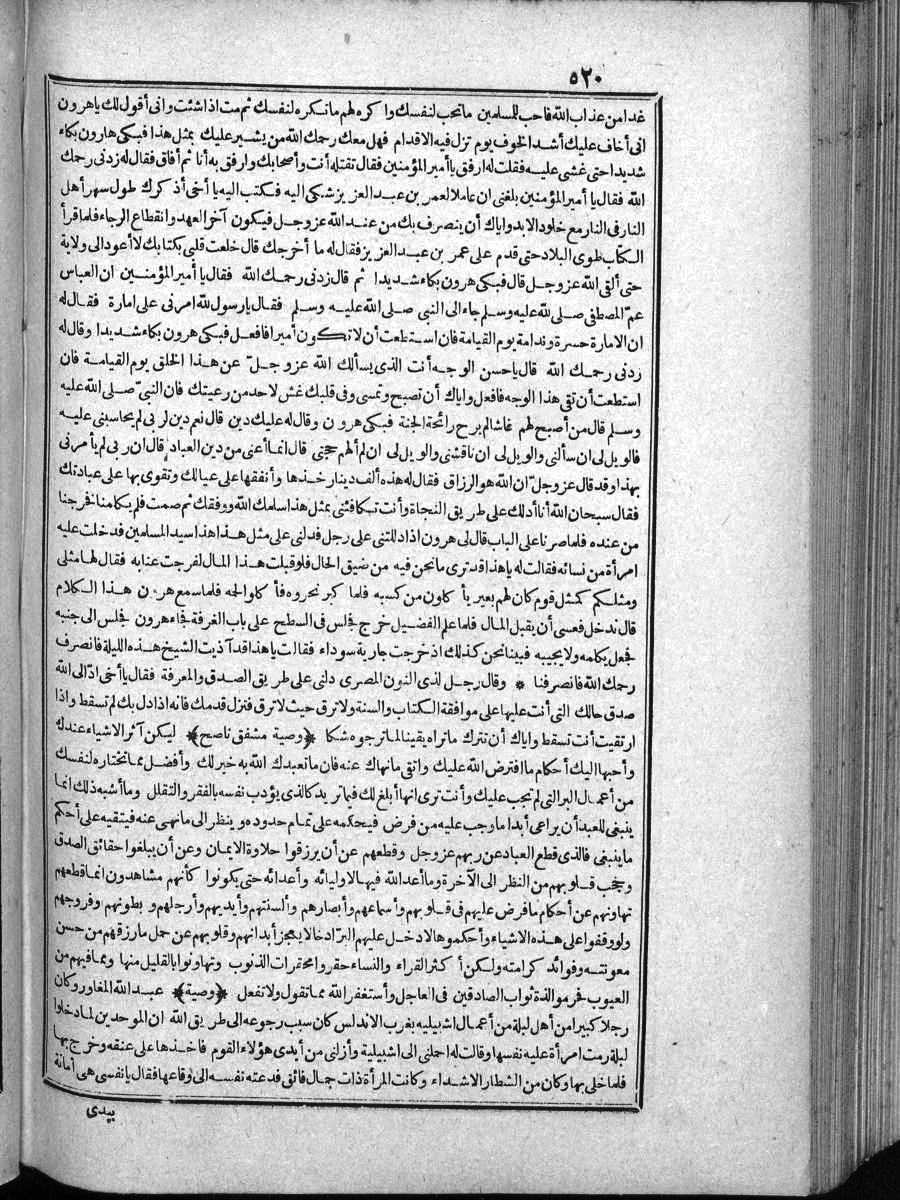 ٥٢٠
غدا من عذاب الله فاحب للمسلمين ماتحب لنفسك واكره لهم ماتكره لنفسك ثم مت اذا شئت وانى أقول لك ياهرون
انى أخاف عليك أشد الخوف يوم تزل فيه الاقدام فهل معك رحمك الله من يشير عليك بمثل هذا فبكى هارون بكاء
شديدا حتى غشى عليه فقلت له ارفق ياأمير المؤمنين فقال تقتله أنت وأصحابك وارفق به أنا ثم أفاق فقال له زدنى رحمك
الله فقال يا أمير المؤمنين بلغنى ان عاملا لعمر بن عبد العزيز شكى اليه فكتب اليه يا أخى أذكرك طول سهر أهل
النار فى النار مع خلود الابد واياك أن ينصرف بك من عند الله عز وجل فيكون آخر العهد وانقطاع الرجاء فلما قرأ
الكتاب طوى البلاد حتى قدم على عمر بن عبد العزيز فقال له ما أخرجك قال خلعت قلبى بكتابك لا أعود الى ولاية
حتى ألقى الله عز وجل قال فبكى هرون بكاء شديدا ثم قال زدنى رحمك الله فقال يا أمير المؤمنين ان العباس
عم المصطفى صلى الله عليه وسلم جاء الى النبى صلى الله عليه وسلم فقال يارسول الله امرنى على امارة فقال له
ان الامارة حسرة وندامة يوم القيامة فان استطعت أن لاتكون أميرا فافعل فبكى هرون بكاء شديدا وقال له
زدنى رحمك الله قال ياحسن الوجه أنت الذى يسألك الله عز وجل عن هذا الخلق يوم القيامة فان
استطعت أن تقى هذا الوجه فافعل واياك أن تصبح وتمسى وفى قلبك غش لاحد من رعيتك فان النبى صلى الله عليه
وسلم قال من أصبح لهم غاشا لم يرح رائحة الجنة فبكى هرون وقال له عليك دين قال نعم دين لربى لم يحاسبنى عليه
فالويل لى ان سألنى والويل لى ان ناقشنى والويل لى ان لم ألهم حجتى قال انما أعنى من دين العباد قال ان ربى لم يأمرنى
بهذا وقد قال عز وجل ان الله هو الرزاق فقال له هذه ألف دينار خذها وأنفقها على عيالك وتقوى بها على عبادتك
فقال سبحان الله أنا أدلك على طريق النجاة وأنت تكافئنى بمثل هذا سلمك الله ووفقك ثم صمت فلم يكلمنا فخرجنا
من عنده فلما صرنا على الباب قال لى هرون اذا دللتنى على رجل فدلنى على مثل هذا هذا سيد المسلمين فدخلت عليه
امرأة من نسائه فقالت له ياهذا قد ترى مانحن فيه من ضيق الحال فلو قبلت هذا المال لفرجت عنا به فقال لها مثلى
ومثلكم كمثل قوم كان لهم بعير يأكلون من كسبه فلما كبر نحروه فأكلوا لحمه فلما سمع هرون هذا الكلام
قال ندخل فعسى أن يقبل المال فلما علم الفضيل خرج فجلس فى السطح على باب الغرفة فجاء هرون فجلس الى جنبه
فجعل يكلمه ولايجيبه فبينا نحن كذلك اذ خرجت جارية سوداء فقالت ياهذا قد آذيت الشيخ هذه الليلة فانصرف
رحمك الله فانصرفنا * وقال رجل لذى النون المصرى دلنى على طريق الصدق والمعرفة فقال يا أخى ادّ الى الله
صدق حالك التى أنت عليها على موافقة الكتاب والسنة ولا ترق حيث لا ترق فتزل قدمك فانه اذا دل بك لم تسقط واذا
ارتقيت أنت تسقط واياك أن تترك ماتراه يقينا لما ترجوه شكا ﴿وصية مشفق ناصح﴾ ليكن آثر الاشياء عندك
وأحبها اليك أحكام ما افترض الله عليك واتقى مانهاك عنه فان ماتعبدك الله به خير لك وأفضل مما تختاره لنفسك
من أعمال البر التى لم تجب عليك وأنت ترى انها أبلغ لك فيما تريد كالذى يؤدب نفسه بالفقر والتقلل وما أشبه ذلك انما
ينبغى للعبد أن يراعى أبدا ما وجب عليه من فرض فيحكمه على تمام حدوده وينظر الى مانهى عنه فيتقيه على أحكم
ماينبغى فالذى قطع العباد عن ربهم عز وجل وقطعهم عن أن يرزقوا حلاوة الايمان وعن أن يبلغوا حقائق الصدق
وحجب قلوبهم من النظر الى الآخرة وما أعد الله فيها لاوليائه وأعدائه حتى يكونوا كأنهم مشاهدون انما قطعهم
تهاونهم عن أحكام مافرض عليهم فى قلوبهم وأسماعهم وأبصارهم وألسنتهم وأيديهم وأرجلهم وبطونهم وفروجهم
ولو وقفوا على هذه الاشياء وأحكموها لادخل عليهم البر ادخالا يعجز أبدانهم وقلوبهم عن حمل مارزقهم من حسن
معونته وفوائد كرامته ولكن أكثر القراء والنساء حقروا محقرات الذنوب وتهاونوا بالقليل منها ومما فيهم من
العيوب فحرموا لذة ثواب الصادقين فى العاجل وأستغفر الله مما تقول ولا تفعل ﴿وصية﴾ عبد الله المغاور وكان
رجلا كبيرا من أهل لبلة من أعمال اشبيلية بغرب الاندلس كان سبب رجوعه الى طريق الله ان الموحدين لما دخلوا
لبلة رمت امرأة عليه نفسها وقالت له احملنى الى اشبيلية وأزلنى من أيدى هؤلاء القوم فاخذها على عنقه وخرج بها
فلما خلى بها وكان من الشطار الاشداء وكانت المرأة ذات جمال فائق فدعته نفسه الى وقاعها فقال يانفسى هى أمانة
بيدى